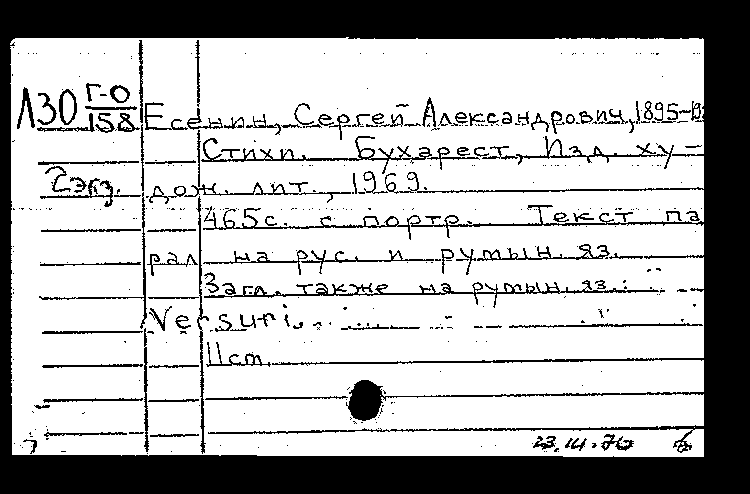 Л30 Г-0 Есенин, Сергей Александрович, 1895-19
158
Стихи. Бухарест, Изд. ху-
2экз. дож. лит., 1969.
465с. с портр. Текст па
рал на рус. и румын. яз.
Загл. также на румын. яз.:
Versuri.
11cm.
23.III.70